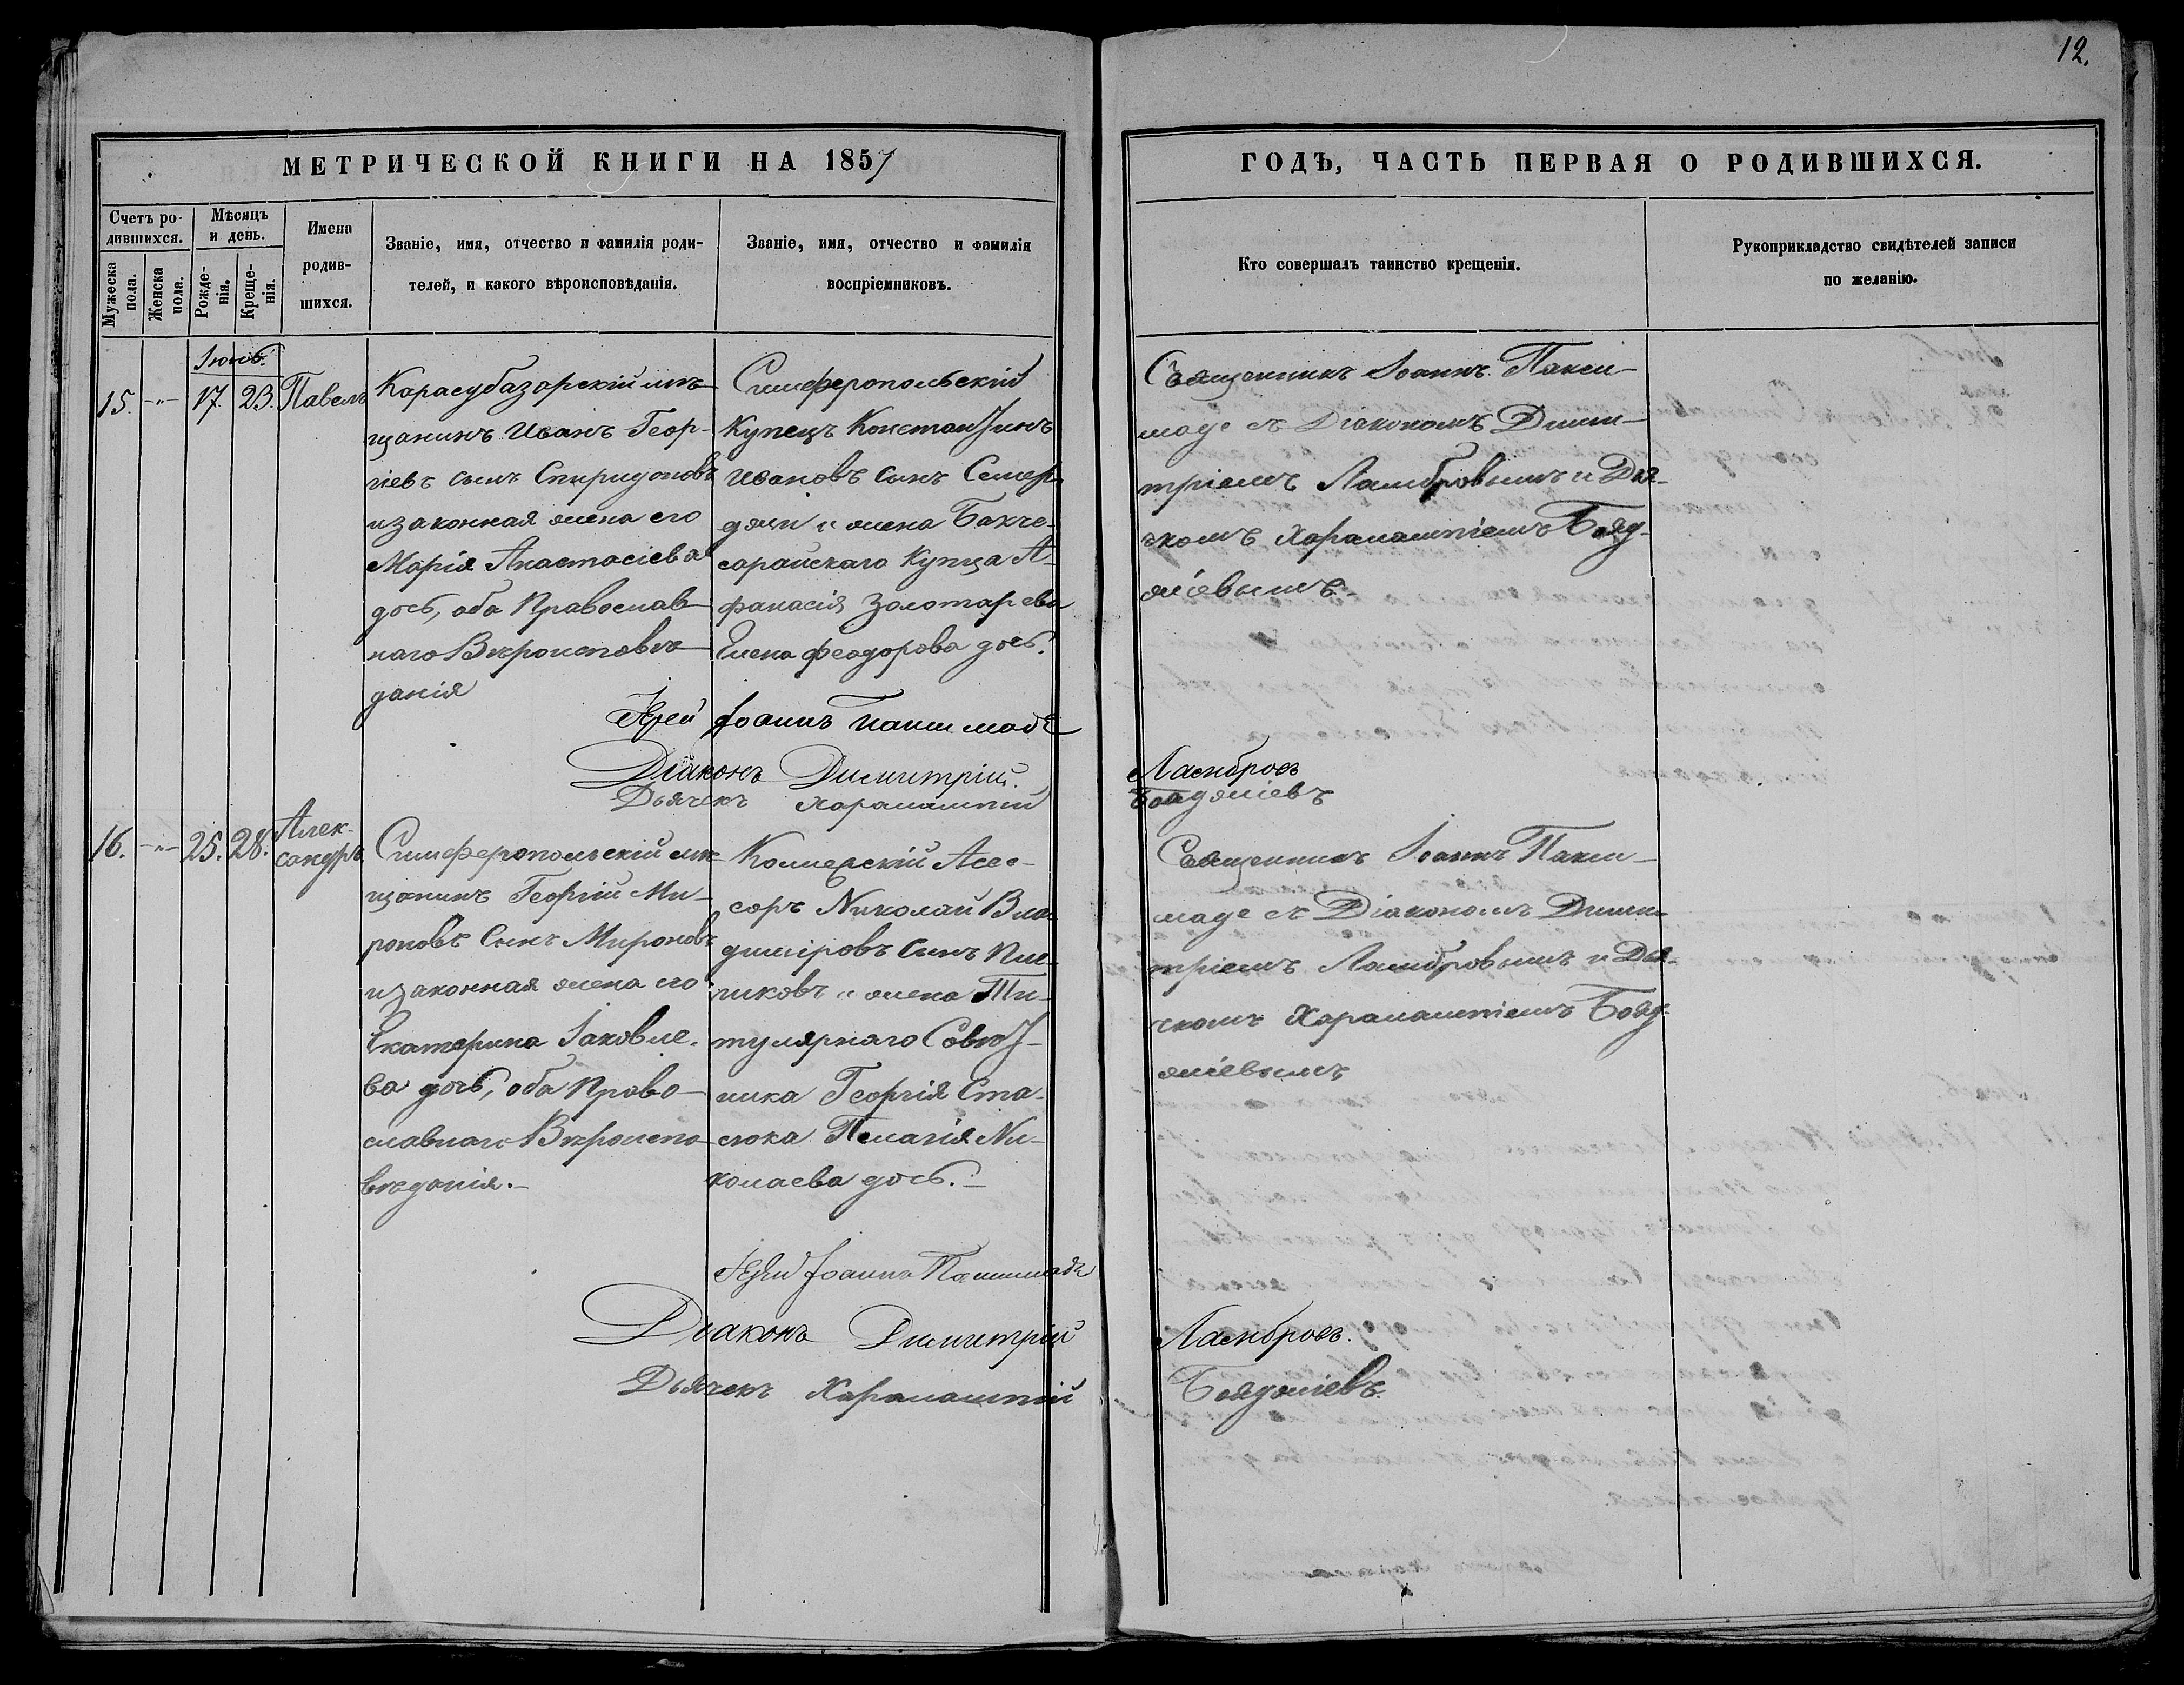 12.
МЕТРИЧЕСКОЙ КНИГИ НА 1857
ГОДЪ, ЧАСТЬ ПЕРВАЯ О РОДИВШИХСЯ.
Счетъ ро-
дившихся.
Мужеска
пола.
Женска
пола.
Мѣсяцъ
и день.
Рожде-
нія.
Креще-
нія.
Имена
родив-
шихся.
Званіе, имя, отчество и фамилія роди-
телей, и какого вѣроисповѣданія.
Званіе, имя, отчество и фамилія
воспріемниковъ.
Кто совершалъ таинство крещенія.
Рукоприкладство свидѣтелей записи
по желанію.
Іюнь.
15. -"- 17. 23. Павелъ
Карасубазарскій мѣ-
щанинъ Иванъ Геор-
гіевъ сынъ Спиридоновъ
и законная жена его
Марія Анастасіева
дочь, оба Православ-
наго Вѣроисповѣ-
данія
Симферопольскій
Купецъ Константинъ
Ивановъ сынъ
и жена Бахче-
сарайскаго Купца А-
фанасія Золотарева
Елена Феодорова дочь.
Священникъ Іоаннъ Пакси-
маде съ Діакономъ Дими-
тріемъ Ламбровымъ и Дья-
чкомъ Харалампіемъ Бояд-
жіевымъ.
Іерей Іоаннъ Паксимаде
Діаконъ Димитрій Ламбровъ
Дьячекъ Харалампій Бояджіевъ
16. -"- 25. 28. Алек-
сандръ
Симферопольскій мѣ-
щанинъ Георгій Ми-
роновъ Сынъ Мироновъ
и законная жена его
Екатерина Іаковле-
ва дочь, оба Право-
славнаго Вѣроиспо-
вѣданія.-
Коллежскій Ассе-
соръ Николай Вла-
диміровъ Сынъ
и жена Ти-
тулярнаго Совѣт-
ника Георгія Ста-
Пелагія Ни-
колаева дочь.-
Священникъ Іоаннъ Пакси-
маде съ Діакономъ Дими-
тріемъ Ламбровымъ и Дья-
чкомъ Харалампіемъ Бояд-
жіевымъ
Іерей Іоаннъ Паксимаде
Діаконъ Димитрій Ламбровъ.
Дьячекъ Харалампій Бояджіевъ.